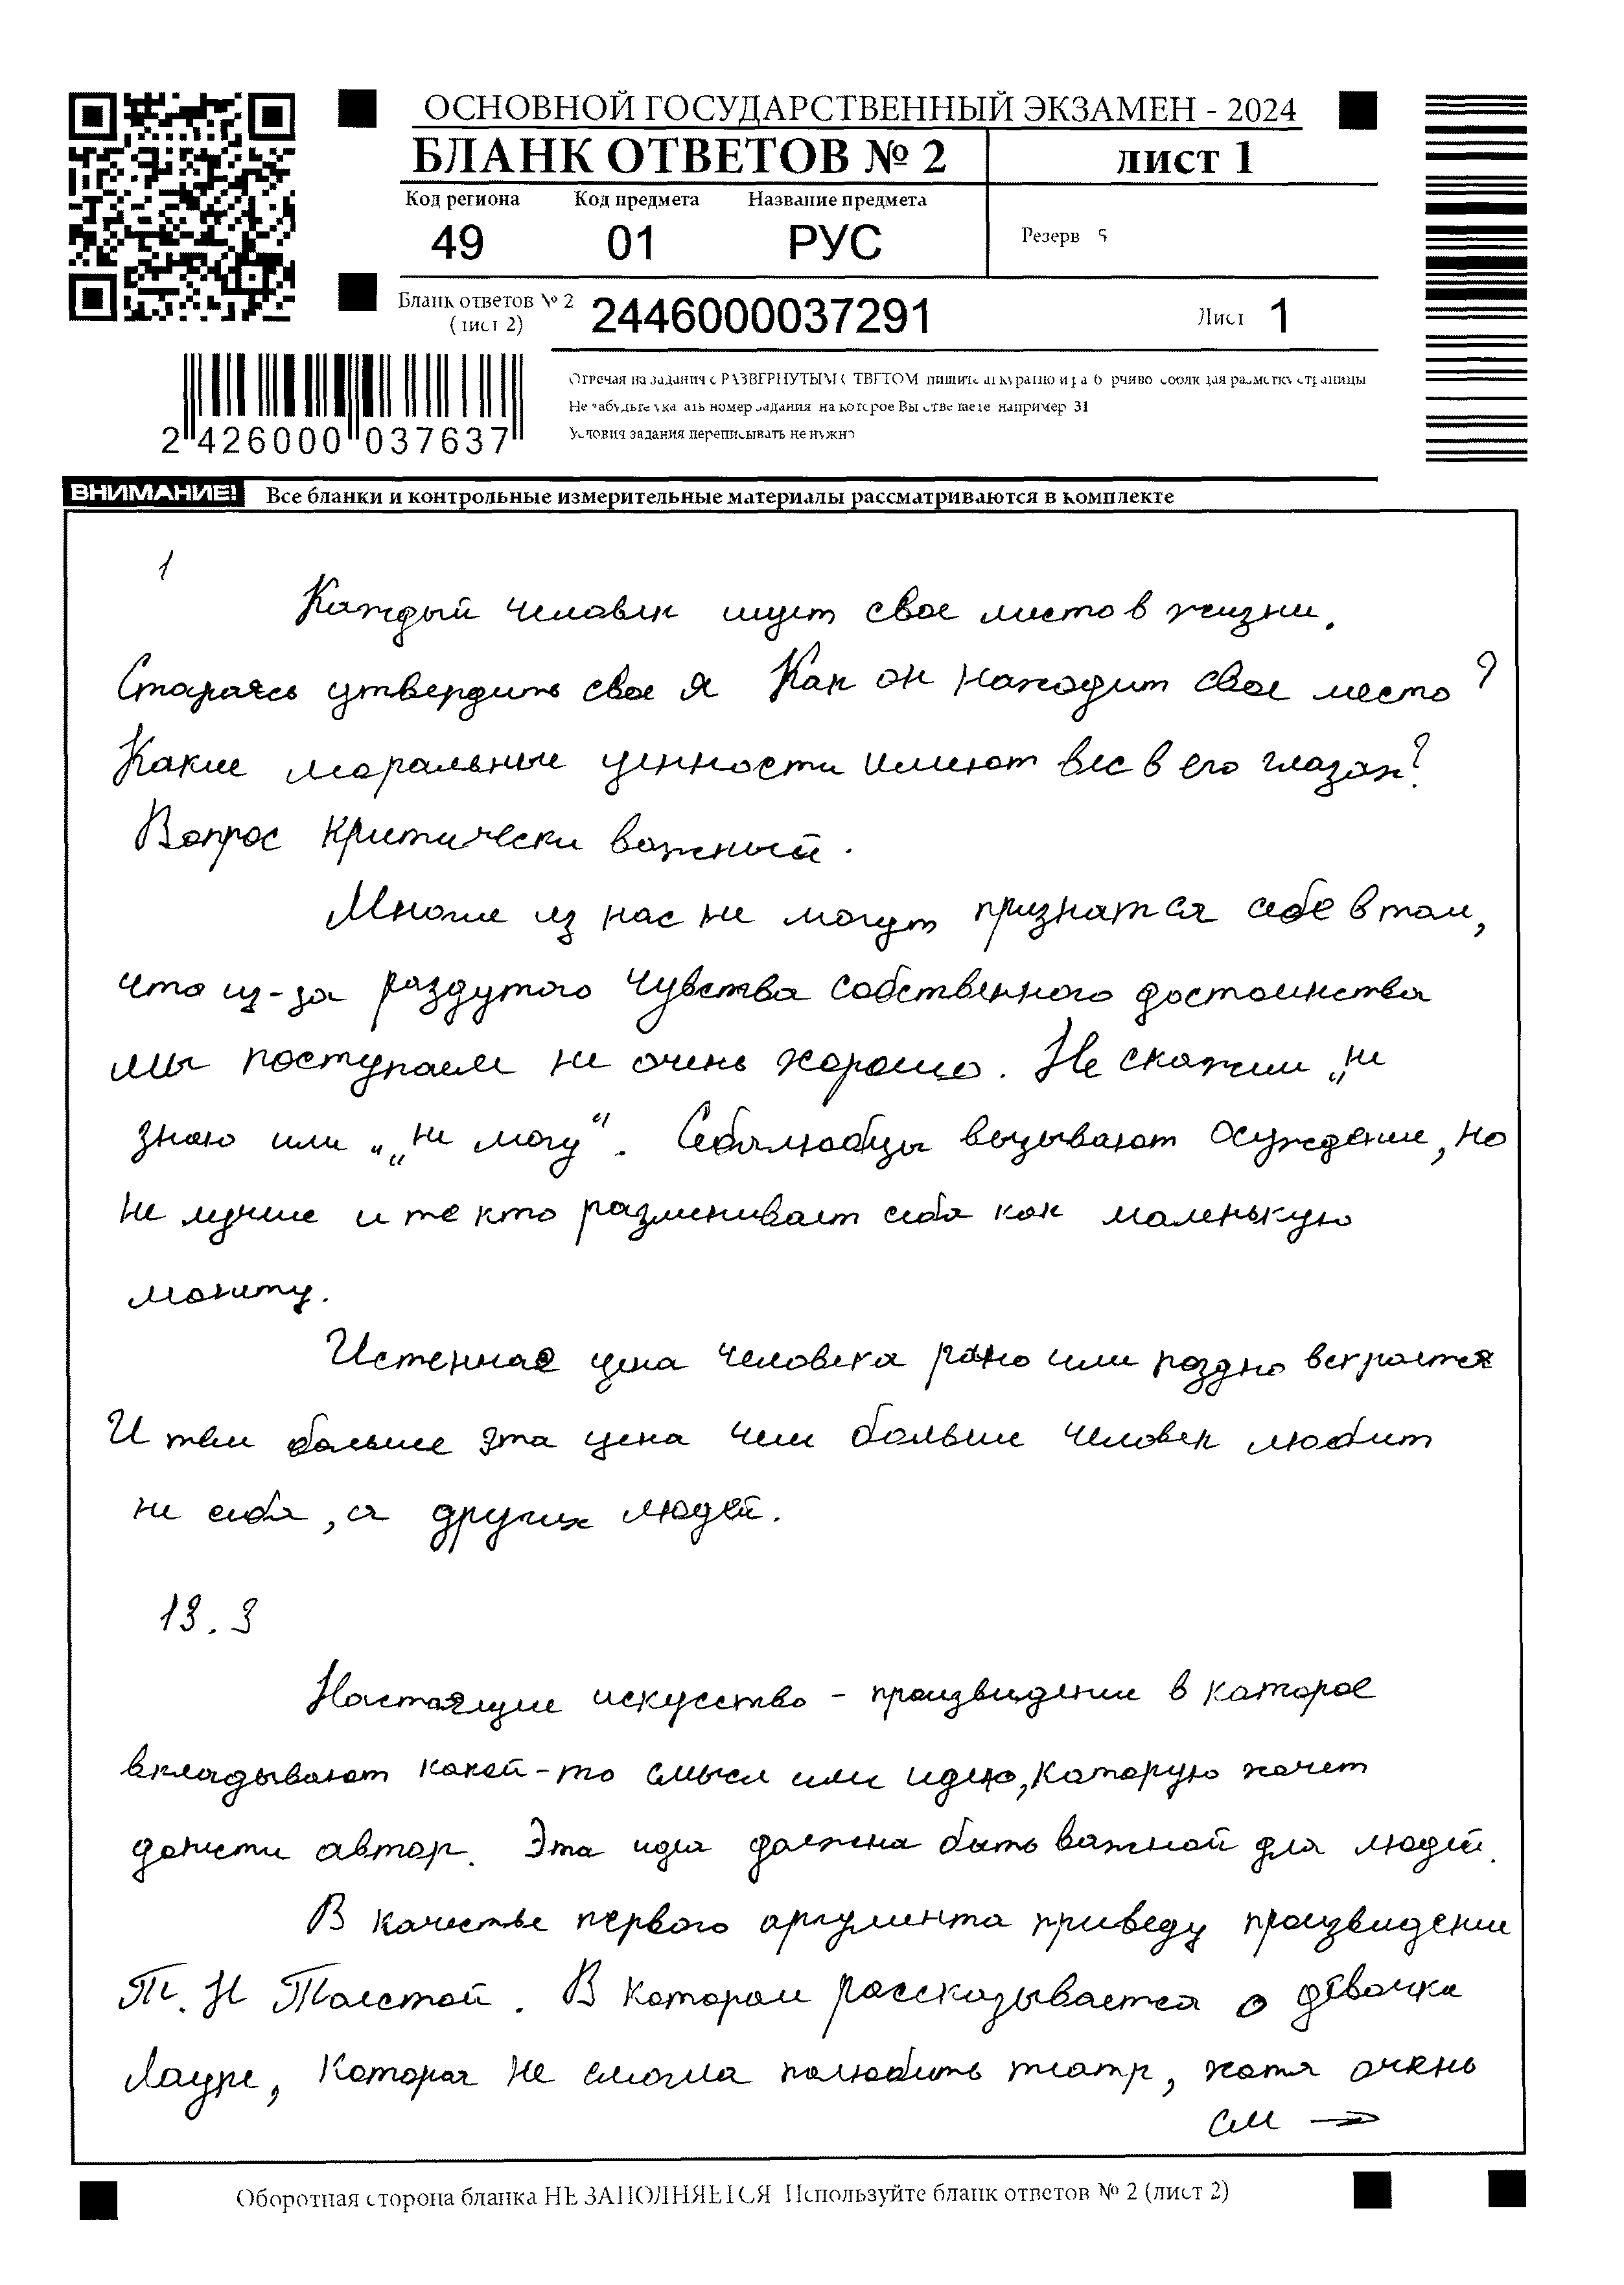 ОСНОВНОЙ ГОСУДАРСТВЕННЫЙ ЭКЗАМЕН - 2024
БЛАНК ОТВЕТОВ № 2
лист 1
Код региона Код предмета Название предмета
49 01 РУС
Резерв 5
Бланк ответов № 2
(лист 2)
2446000037291
Лист 1
2 426000 037637
Отвечая на задания с РАЗВЕРНУТЫМ ОТВЕТОМ пишите аккуратно и разборчиво соблюдая разметку страницы
Не забудьте указать номер задания на которое Вы отвечаете например 31
Условия задания переписывать не нужно
ВНИМАНИЕ! Все бланки и контрольные измерительные материалы рассматриваются в комплекте
1
Каждый человек ищет свое место в жизни.
Стараясь утвердить свое я Как он находит свое место?
Какие моральные ценности имеют вес в его глазах?
Вопрос критически важный.
Многие из нас не могут признатся себе в том,
что из-за раздутого чувства собственного достоинства
мы поступаем не очень хорошо. Не скажем „не
знаю или „„не могу“. Себялюбцы вызывают осуждение, но
не лучше и те кто разменивает себя как маленькую
монету.
Истенная цена человека рано или поздно вскрается
И тем больше эта цена чем больше человек любит
не себя, а других людей.
13.3
Настоящие искусство - произвидение в которое
вкладывают какой-то смысл или идею, которую хочет
донести автор. Эта идея должна быть важной для людей.
В качестве первого аргумента приведу произвидение
Т. Н Толстой. В котором рассказывается о девочке
Лауре, которая не смогла полюбить театр, хотя очень
см →
Оборотная сторона бланка НЕ ЗАПОЛНЯЕТСЯ Используйте бланк ответов № 2 (лист 2)